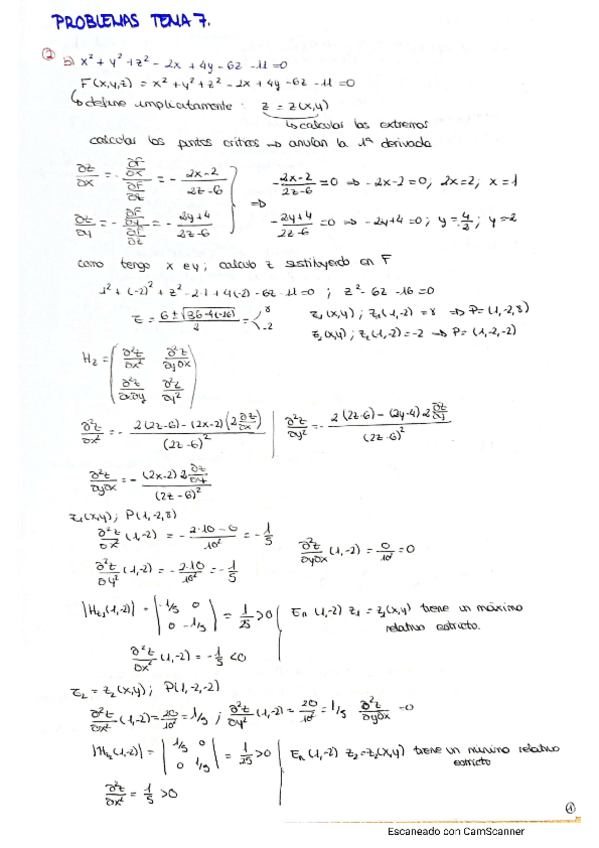 PROBLEMAS TEMA 7.
② b) x² + y² + z² - 2x + 4y - 6z - 11 = 0
F(x,y,z) = x² + y² + z² - 2x + 4y - 6z - 11 = 0
↳ define implícitamente: z = z(x,y)
↳ calcular los extremos
calcular los puntos críticos ⇒ anulan la 1ª derivada
∂z/∂x = - (∂F/∂x)/(∂F/∂z) = - (2x-2)/(2z-6) ⇒ - (2x-2)/(2z-6) = 0 ⇒ -2x-2=0; 2x=2; x=1
∂z/∂y = - (∂F/∂y)/(∂F/∂z) = - (2y+4)/(2z-6) ⇒ - (2y+4)/(2z-6) = 0 ⇒ -2y+4=0; y=4/2; y=-2
como tengo x e y; calculo z sustituyendo en F
1² + (-2)² + z² - 2·1 + 4(-2) - 6z - 11 = 0 ; z² - 6z - 16 = 0
z = (6 ± √(36-4(-16)))/2 = < 8 -2 z₁(x,y); z₁(1,-2) = 8 ⇒ P=(1,-2,8)
z₂(x,y); z₂(1,-2) = -2 ⇒ P=(1,-2,-2)
Hz = (∂²z/∂x² ∂²z/∂y∂x
∂²z/∂x∂y ∂²z/∂y²)
∂²z/∂x² = - (2(2z-6) - (2x-2)(2 ∂z/∂x))/(2z-6)² | ∂²z/∂y² = - (2(2z-6) - (2y-4)2 ∂z/∂y)/(2z-6)²
∂²z/∂y∂x = - ((2x-2)2 ∂z/∂y)/(2z-6)²
z₁(x,y); P(1,-2,8)
∂²z/∂x² (1,-2) = - (2·10-0)/10² = - 1/5 ∂²z/∂y∂x (1,-2) = 0/10² = 0
∂²z/∂y² (1,-2) = - 2·10/10² = - 1/5
|Hz₁(1,-2)| = |-1/5 0 / 0 -1/5| = 1/25 > 0 | En (1,-2) z₁ = z₁(x,y) tiene un máximo
relativo estricto.
∂²z/∂x² (1,-2) = -1/5 < 0
z₂ = z₂(x,y); P(1,-2,-2)
∂²z/∂x² (1,-2) = 20/10² = 1/5 ; ∂²z/∂y² (1,-2) = 20/10² = 1/5 ∂²z/∂y∂x = 0
|Hz₂(1,-2)| = |1/5 0 / 0 1/5| = 1/25 > 0 | En (1,-2) z₂ = z₂(x,y) tiene un mínimo relativo
estricto
∂²z/∂x² = 1/5 > 0
①
Escaneado con CamScanner